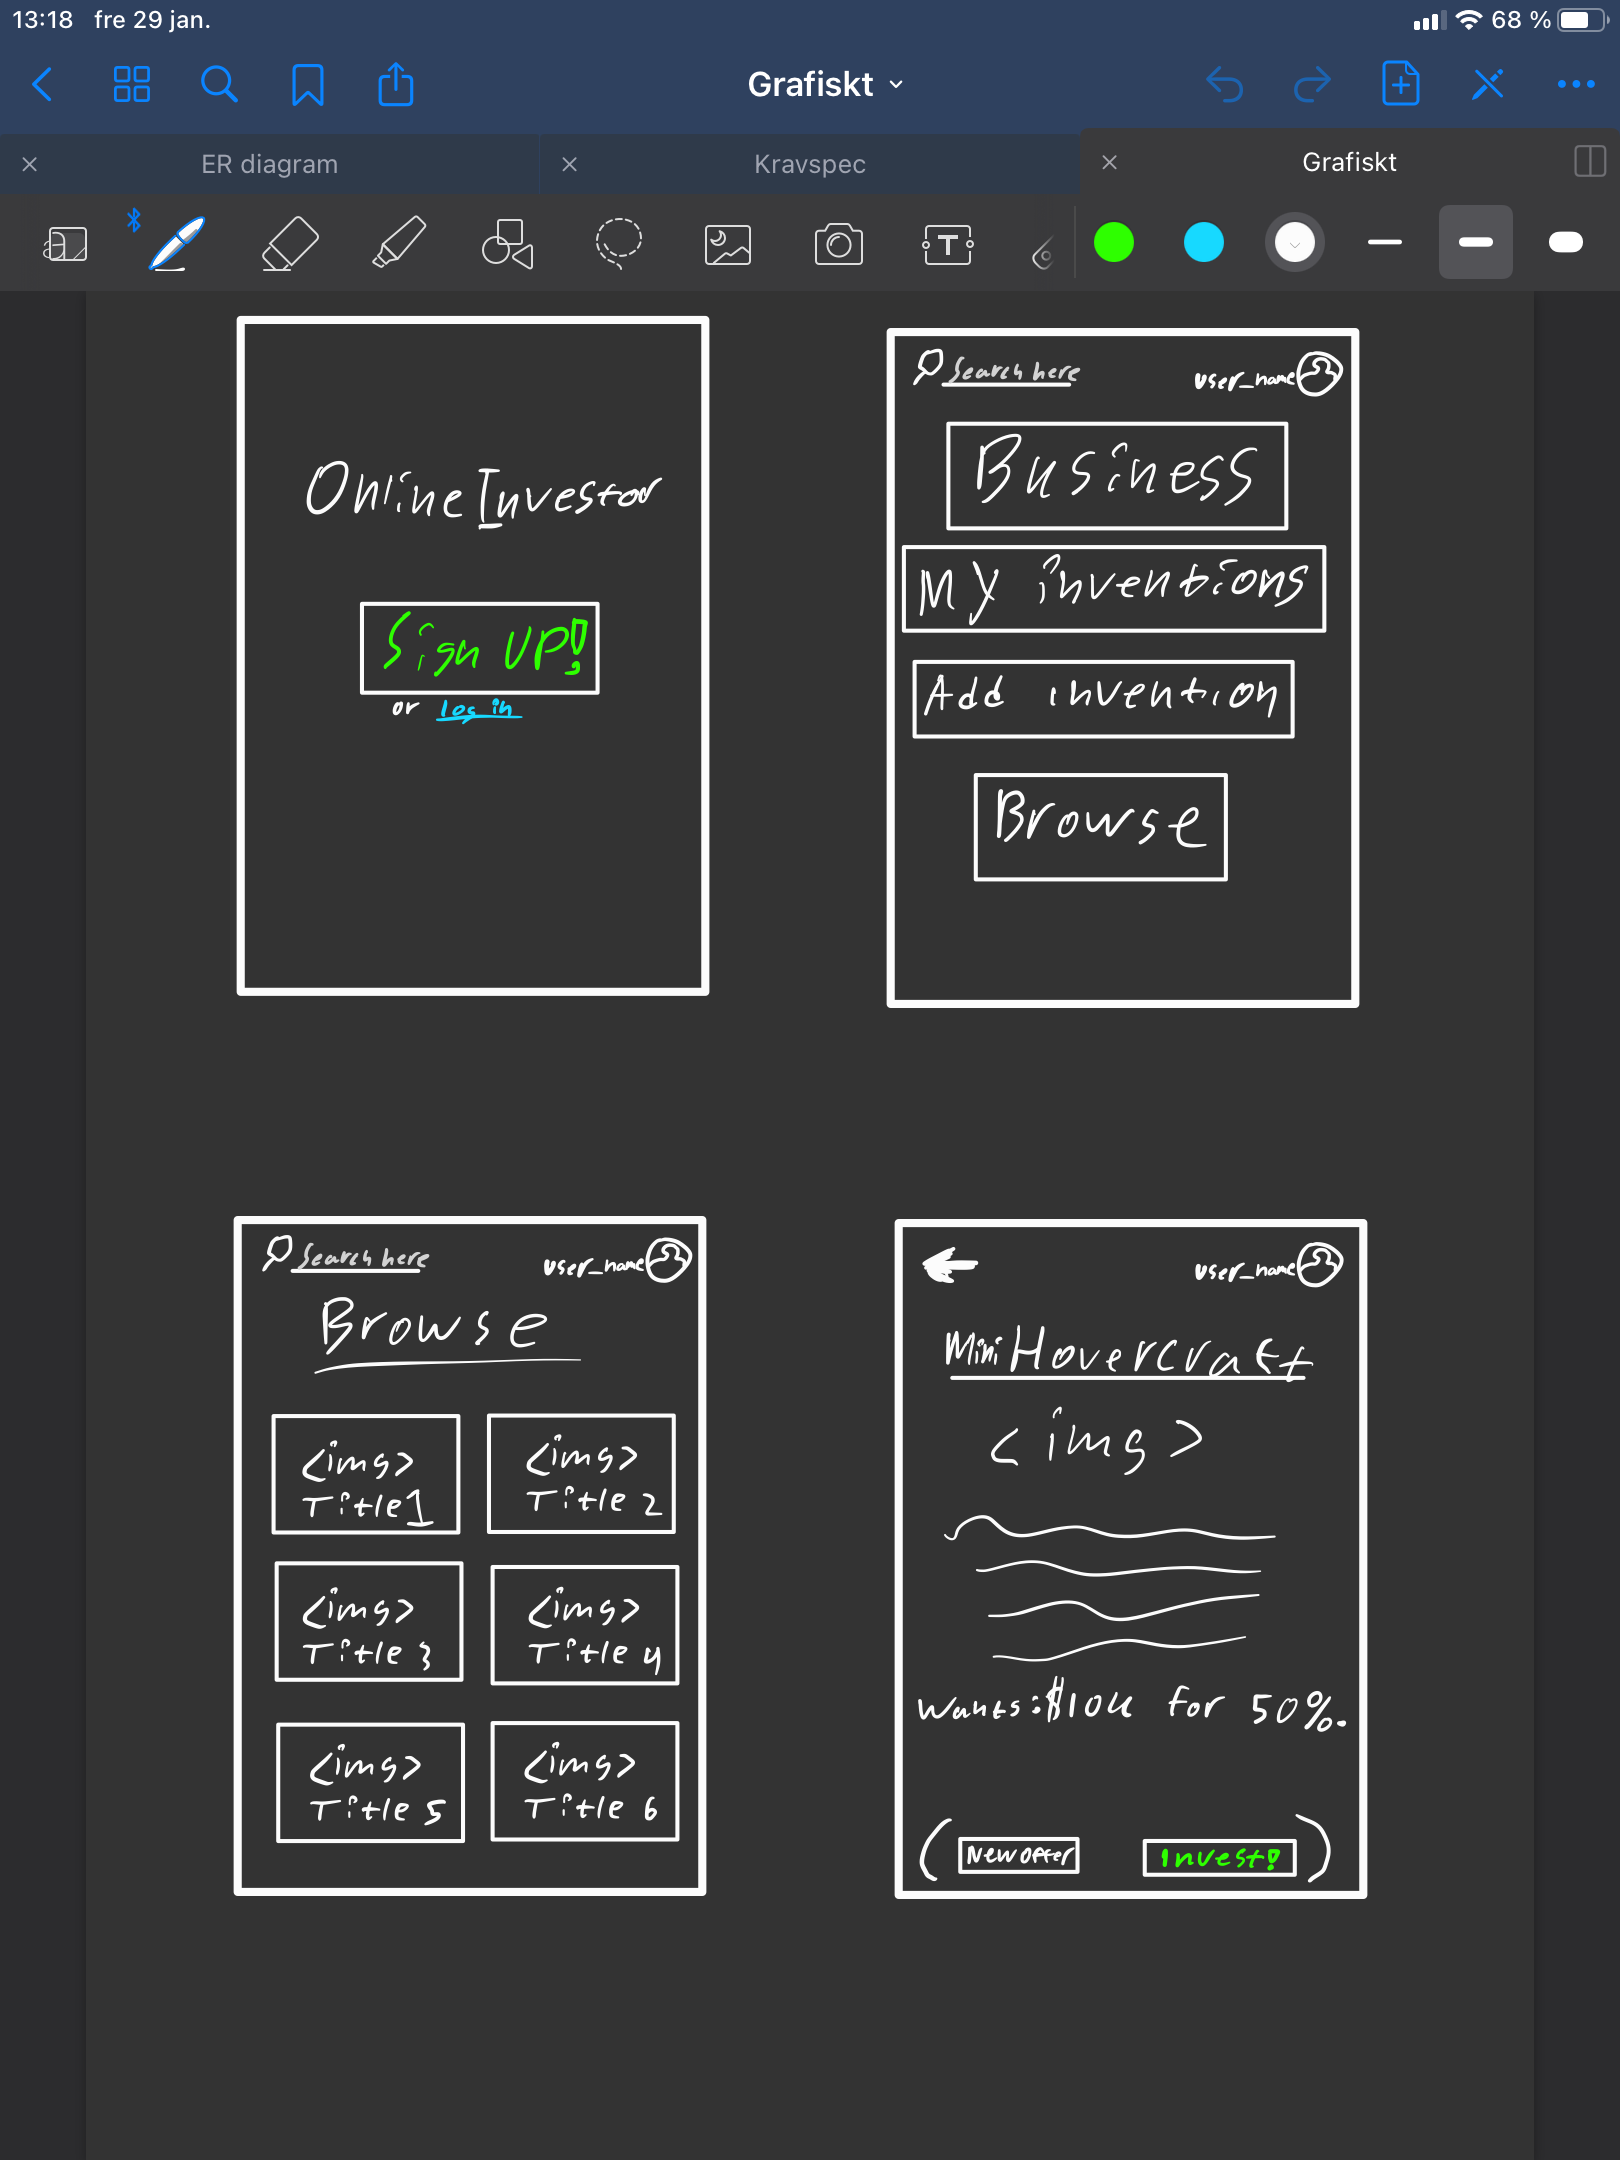 13:18 fre 29 jan.
68 %
Grafiskt
ER diagram
Kravspec
Grafiskt
T
Online Investor
Sign UP!
or log in
Search here
user_name
Business
My inventions
Add invention
Browse
Search here
user_name
Browse
<img>
Title 1
<img>
Title 2
<img>
Title 3
<img>
Title 4
<img>
Title 5
<img>
Title 6
user_name
Mini Hovercraft
<img>
Wants: $10k for 50%.
(New offer
Invest!)